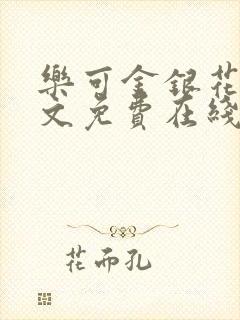 樂可金銀花
文免費在綫
花而孔